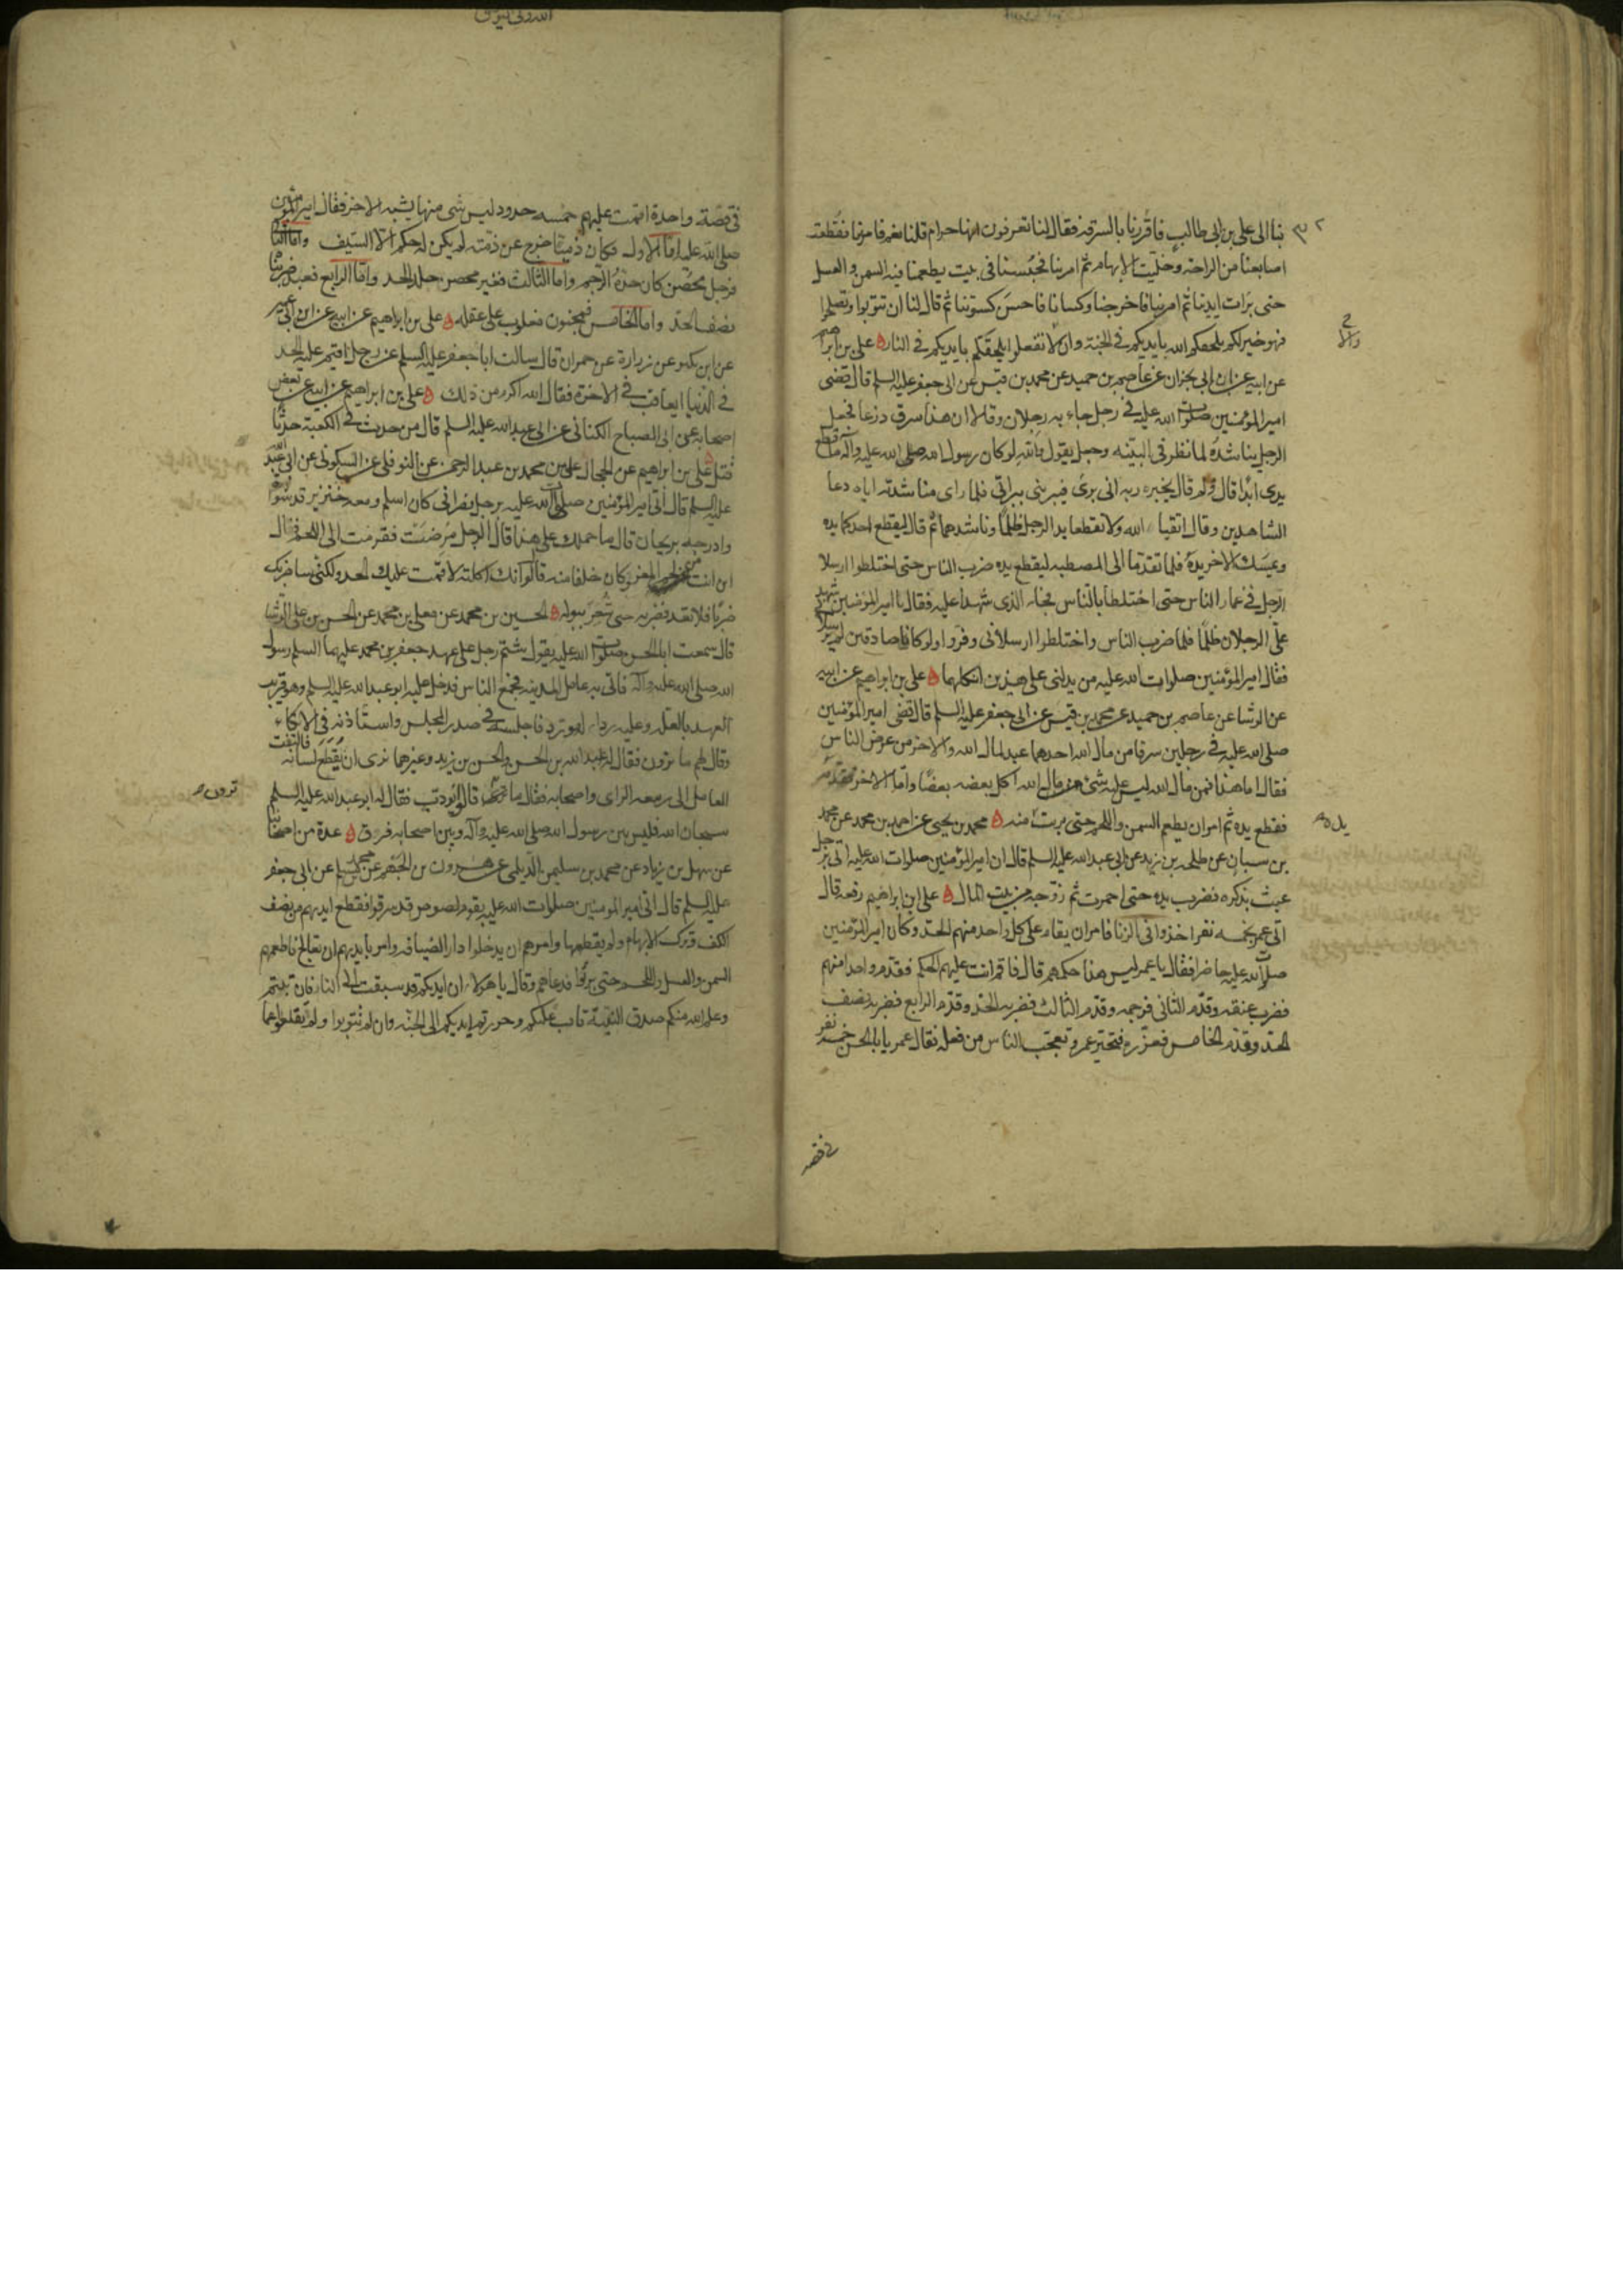 بنا الى على بن ابى طالب فاقررنا بالسرقه فقال لنا تعرفون انها حرام قلنا نعم فامر بنا فقطعت
اصابعنا من الراحة وخليت الابهام ثم امر بنا فحبسنا فى بيت يطعمنا فيه السمن والعسل
حتى برات ايدينا ثم امر بنا فاخرجنا وكسانا فاحسن كسوتنا ثم قال لنا ان تتوبوا وتصلحوا
فهو خير لكم يلحقكم الله بايديكم فى الجنة وان لا تفعلوا يلحقكم بايديكم فى النار ه على بن ابرهيم
عن ابيه عن ابن ابى نجران عن عاصم بن حميد عن محمد بن قيس عن ابى جعفر عليه السلم قال قضى
امير المؤمنين صلوات الله عليه فى رجل جاء به رجلان وقالا ان هذا سرق درعا فجعل
الرجل يناشده لما نظر فى البينه وجعل يقول والله لو كان رسول الله صلى الله عليه وآله ما قطع
يدى ابدا قال ولم قال يخبره ربه انى برئ فيبرئنى ببراتى فلما راى مناشدته اياه دعا
الشاهدين وقال اتقيا الله ولا تقطعا يد الرجل ظلما وناشدهما ثم قال ليقطع احدكما يده
ويمسك الاخر يده فلما تقدما الى المصطبه ليقطع يده ضرب الناس حتى اختلطوا ارسلا
الرجل فى غمار الناس حتى اختلطا بالناس فجاء الذى شهدا عليه فقال يا امير المؤمنين شهد
على الرجلان ظلما فلما ضرب الناس واختلطوا ارسلانى وفروا ولو كانا صادقين لم يرسلا
فقال امير المؤمنين صلوات الله عليه من يدلنى على هذين انكلهما ه على بن ابراهيم عن ابيه
عن الوشا عن عاصم بن حميد عن محمد بن قيس عن ابى جعفر عليه السلم قال قضى امير المؤمنين
صلى الله عليه فى رجلين سرقا من مال الله احدهما عبد لمال الله والاخر من عرض الناس
فقال اما هذا فمن مال الله ليس عليه شئ من مال الله اكل بعضه بعضا واما الاخر فقدمه
فقطع يده ثم امر ان يطعم السمن واللحم حتى برئت منه ه محمد بن يحيى عن احمد بن محمد عن محمد
بن سنان عن طلحه بن زيد عن ابى عبد الله عليه السلم قال ان امير المؤمنين صلوات الله عليه اتى برجل
عبث بذكره فضرب يده حتى احمرت ثم زوجه من بيت المال ه على ابن ابراهيم رفعه قال
اتى عمر بخمسه نفر اخذوا فى الزنا فامر ان يقام على كل واحد منهم الحد وكان امير المؤمنين
صلى الله عليه حاضرا فقال يا عمر ليس هذا حكمهم قال فاقم انت عليهم الحكم فقدم واحدا منهم
فضرب عنقه وقدم الثانى فرجمه وقدم الثالث فضربه الحد وقدم الرابع فضربه نصف
الحد وقدم الخامس فعزره فتحير عمر وتعجب الناس من فعله فقال عمر يا با الحسن خمسه نفر
فى قصه
يده
فى قصة واحدة اقمت عليهم خمسه حدود ليس شى منها يشبه الاخر فقال امير المؤمنين
صلى الله عليه اما الاول فكان ذميا خرج عن ذمته لم يكن له حكم الا السيف واما الثانى
فرجل محصن كان حده الرجم واما الثالث فغير محصن جلد الحد واما الرابع فعبد ضربناه
نصف الحد واما الخامس فمجنون مغلوب على عقله ه على بن ابراهيم عن ابيه عن ابن ابى عمير
عن ابن بكير عن زرارة عن حمران قال سالت ابا جعفر عليه السلم عن رجل اقيم عليه الحد
فى الدنيا ايعاقب فى الاخرة فقال الله اكرم من ذلك ه على بن ابراهيم عن ابيه عن بعض
اصحابه عن ابى الصباح الكنانى عن ابى عبد الله عليه السلم قال من احدث فى الكعبة حدثا
قتل على بن ابراهيم عن ابيه عن محمد بن عبد الرحمن عن النوفلى عن السكونى عن ابى عبد الله
عليه السلم قال اتى امير المؤمنين صلوات الله عليه برجل نصرانى كان اسلم ومعه خنزير قد شواه
وادرجه بريحان قال ما حملك على هذا قال الرجل مرضت فقرمت الى اللحم فقال
اين انت من لحم المعز وكان خلفا منه قال لو انك اكلته لاقمت عليك الحد ولكنى ساضربك
ضربا فلا تعد فضربه حتى شغر ببوله ه الحسين بن محمد عن معلى بن محمد عن الحسن بن على الوشا
قال سمعت ابا الحسن صلوات الله عليه يقول شتم رجل على عهد جعفر بن محمد عليهما السلم رسول
الله صلى الله عليه وآله فاتى به عامل المدينه فجمع الناس فدخل عليه ابو عبد الله عليه السلم وهو قريب
العهد بالعله وعليه رداء له مورد فاجلسه فى صدر المجلس واستاذنه فى الاتكاء
وقال لهم ما ترون فقال له عبد الله بن الحسن والحسن بن زيد وغيرهما نرى ان يقطع لسانه فالتفت
العامل الى ربيعه الراى واصحابه فقال ما ترون قالوا يؤدب فقال له ابو عبد الله عليه السلم
سبحان الله فليس بين رسول الله صلى الله عليه وآله وبين اصحابه فرق ه عدة من اصحابنا
عن سهل بن زياد عن محمد بن سليمن الديلمى عن هرون بن الجهم عن محمد بن مسلم عن ابى جعفر
عليه السلم قال اتى امير المومنين صلوات الله عليه بقوم لصوص قد سرقوا فقطع ايديهم من نصف
الكف وترك الابهام ولم يقطعها وامرهم ان يدخلوا دار الضيافه وامر بايديهم ان تعالج فاطعمهم
السمن والعسل واللحم حتى برؤا فدعاهم وقال يا هؤلاء ان ايديكم قد سبقت الى النار فان تبتم
وعلم الله منكم صدق النية تاب عليكم وجررتم ايديكم الى الجنه وان لم تتوبوا ولم تقلعوا عما
ترون